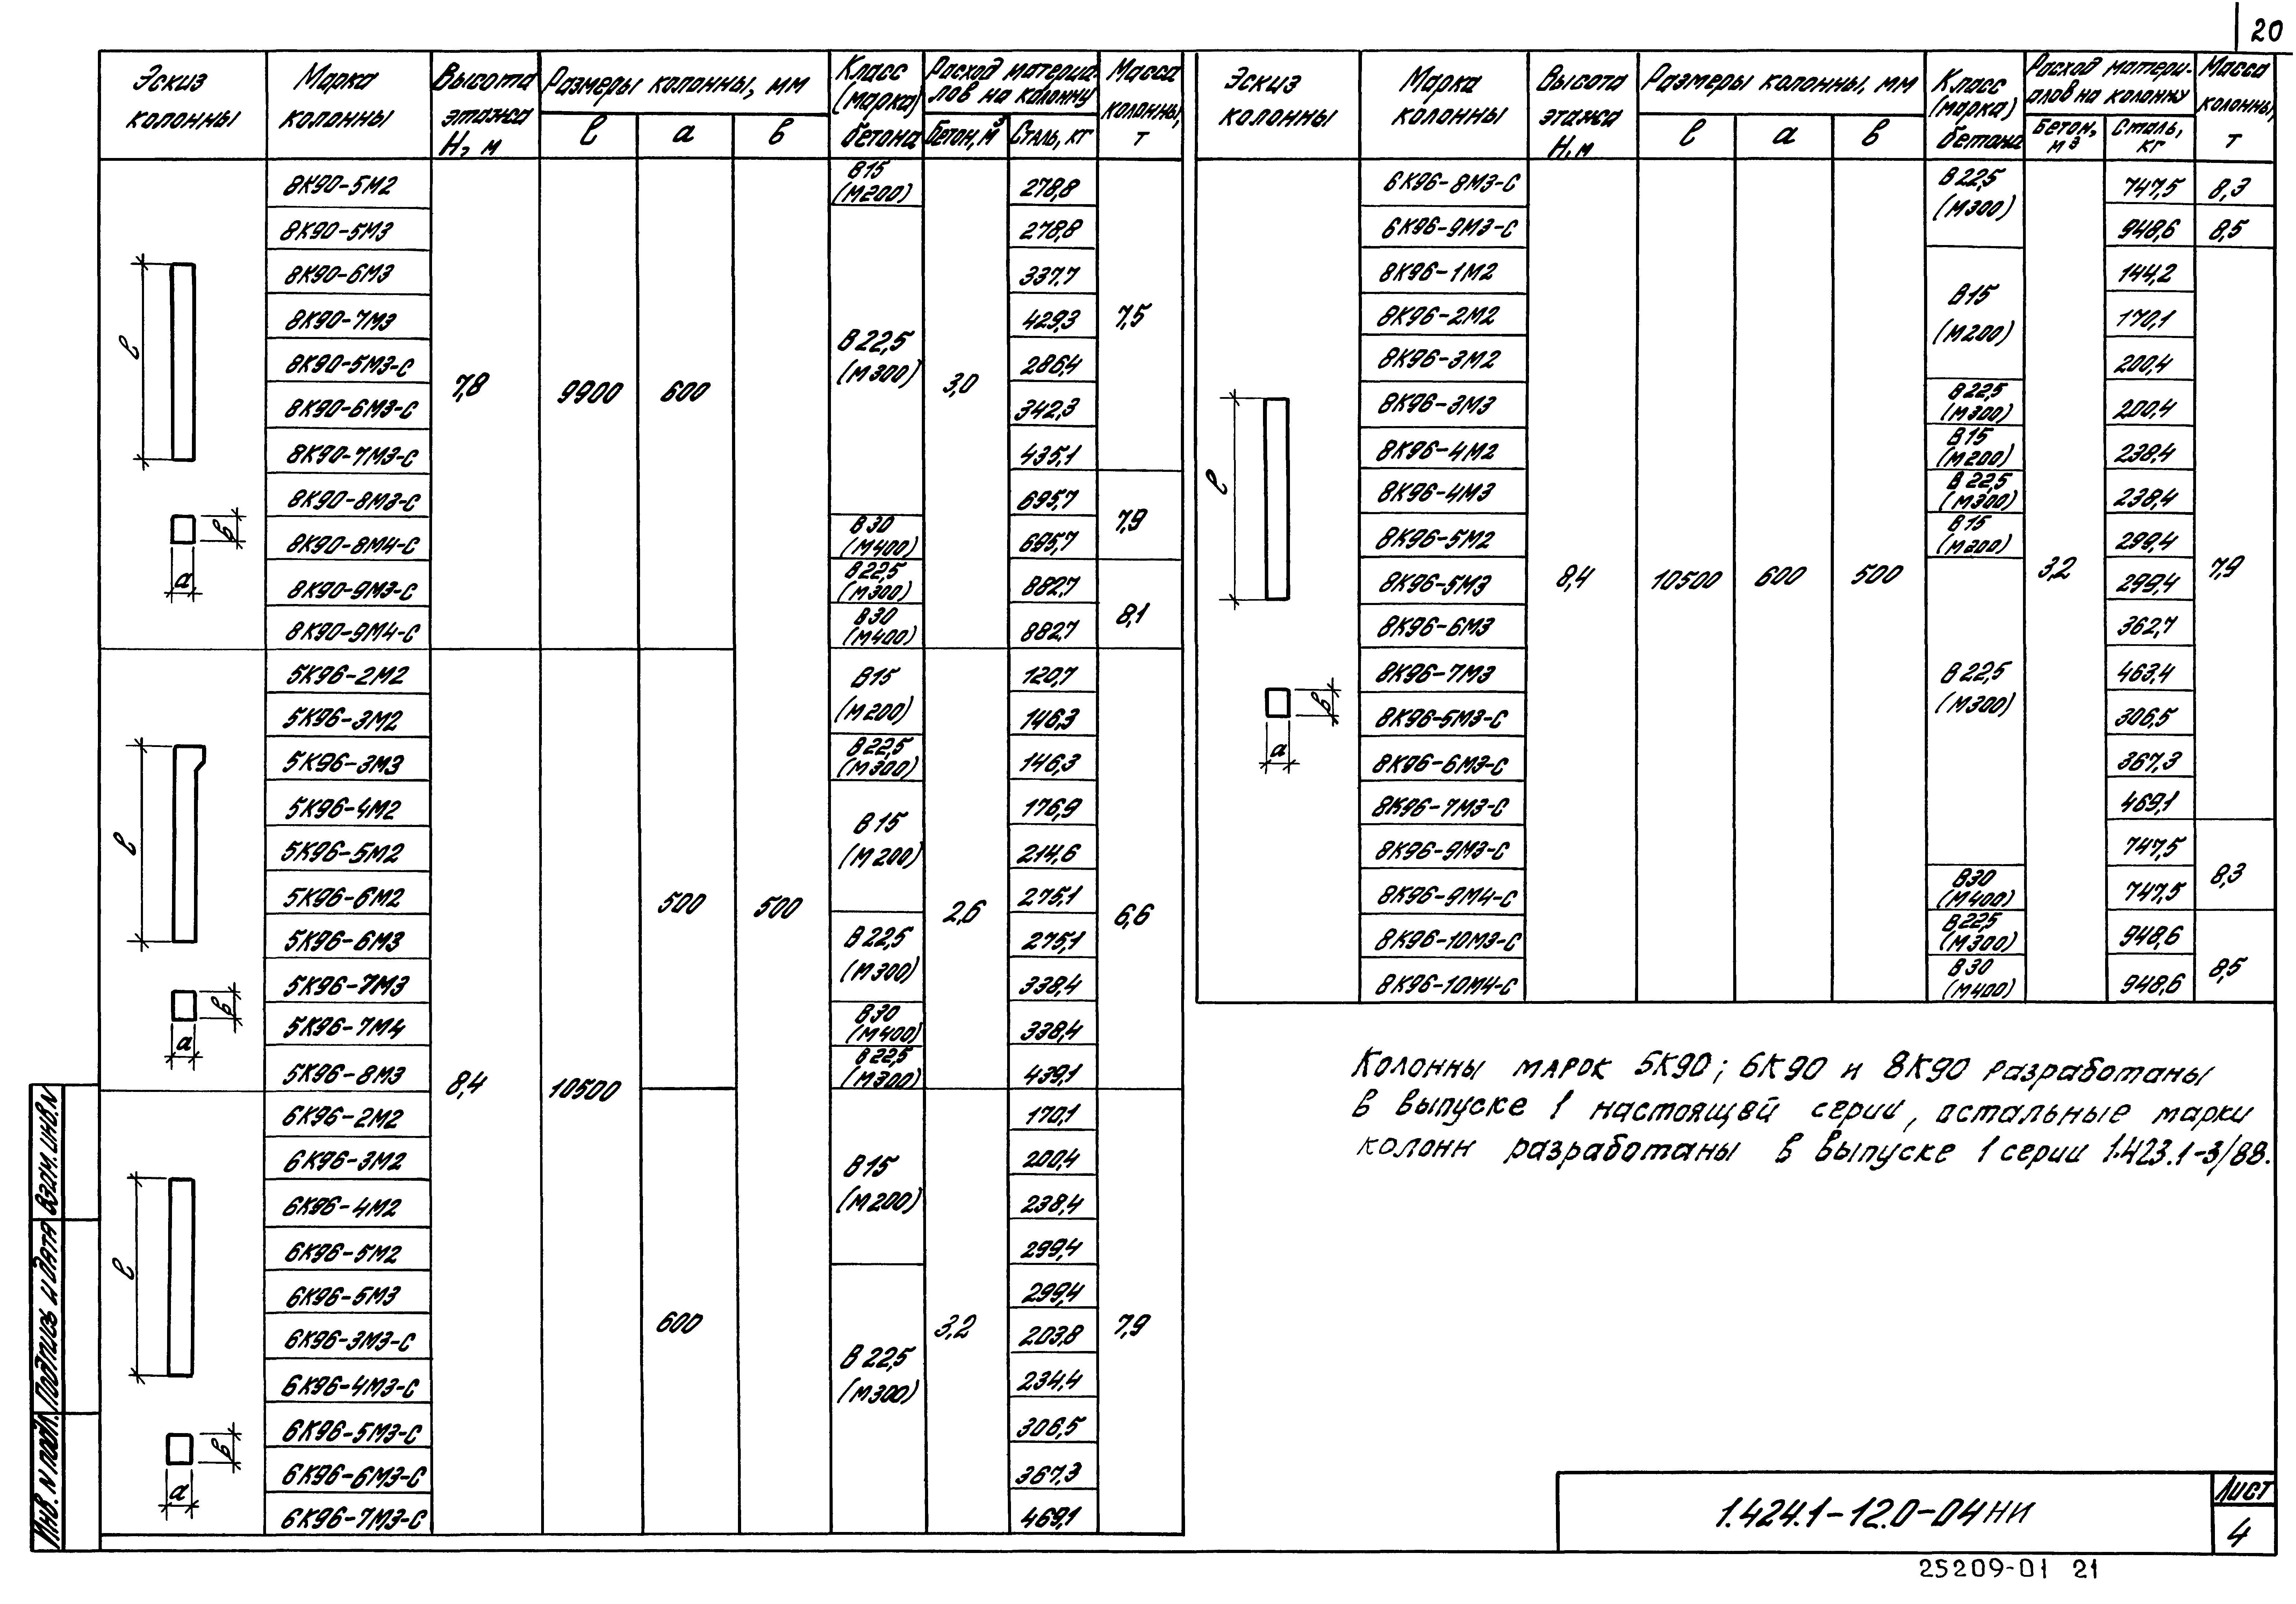 20
Эскиз колонны | Марка колонны | Высота этажа Н, м | Размеры колонны, мм | Класс (марка) бетона | Расход материалов на колонну | Масса колонны, т
ℓ | а | в | Бетон, м³ | Сталь, кг
8К90-5М2 | 7,8 | 9900 | 600 | 500 | В15 (М200) | 3,0 | 278,8 | 7,5
8К90-5М3 | В22,5 (М300) | 278,8
8К90-6М3 | 337,7
8К90-7М3 | 429,3
8К90-5М3-С | 286,4
8К90-6М3-С | 342,3
8К90-7М3-С | 435,1
8К90-8М3-С | 695,7 | 7,9
8К90-8М4-С | В30 (М400) | 695,7
8К90-9М3-С | В22,5 (М300) | 882,7 | 8,1
8К90-9М4-С | В30 (М400) | 882,7
5К96-2М2 | 8,4 | 10500 | 500 | В15 (М200) | 2,6 | 120,7 | 6,6
5К96-3М2 | 146,3
5К96-3М3 | В22,5 (М300) | 146,3
5К96-4М2 | В15 (М200) | 176,9
5К96-5М2 | 214,6
5К96-6М2 | 275,1
5К96-6М3 | В22,5 (М300) | 275,1
5К96-7М3 | 338,4
5К96-7М4 | В30 (М400) | 338,4
5К96-8М3 | В22,5 (М300) | 439,1
6К96-2М2 | 600 | В15 (М200) | 3,2 | 170,1 | 7,9
6К96-3М2 | 200,4
6К96-4М2 | 238,4
6К96-5М2 | 299,4
6К96-5М3 | В22,5 (М300) | 299,4
6К96-3М3-С | 203,8
6К96-4М3-С | 234,4
6К96-5М3-С | 306,5
6К96-6М3-С | 367,3
6К96-7М3-С | 469,1
ℓ
в
а
ℓ
в
а
ℓ
в
а
Эскиз колонны | Марка колонны | Высота этажа Н, м | Размеры колонны, мм | Класс (марка) бетона | Расход материалов на колонну | Масса колонны, т
ℓ | а | в | Бетон, м³ | Сталь, кг
6К96-8М3-С | 8,4 | 10500 | 600 | 500 | В22,5 (М300) | 3,2 | 747,5 | 8,3
6К96-9М3-С | 948,6 | 8,5
8К96-1М2 | В15 (М200) | 144,2 | 7,9
8К96-2М2 | 170,1
8К96-3М2 | 200,4
8К96-3М3 | В22,5 (М300) | 200,4
8К96-4М2 | В15 (М200) | 238,4
8К96-4М3 | В22,5 (М300) | 238,4
8К96-5М2 | В15 (М200) | 299,4
8К96-5М3 | В22,5 (М300) | 299,4
8К96-6М3 | 362,7
8К96-7М3 | 463,4
8К96-5М3-С | 306,5
8К96-6М3-С | 367,3
8К96-7М3-С | 469,1
8К96-9М3-С | 747,5 | 8,3
8К96-9М4-С | В30 (М400) | 747,5
8К96-10М3-С | В22,5 (М300) | 948,6 | 8,5
8К96-10М4-С | В30 (М400) | 948,6
ℓ
в
а
Колонны марок 5К90; 6К90 и 8К90 разработаны
в выпуске 1 настоящей серии, остальные марки
колонн разработаны в выпуске 1 серии 1.423.1-3/88.
Инв. N подл. Подпись и дата Взам. инв. N
1.424.1-12.0-04НИ
Лист
4
25209-01 21